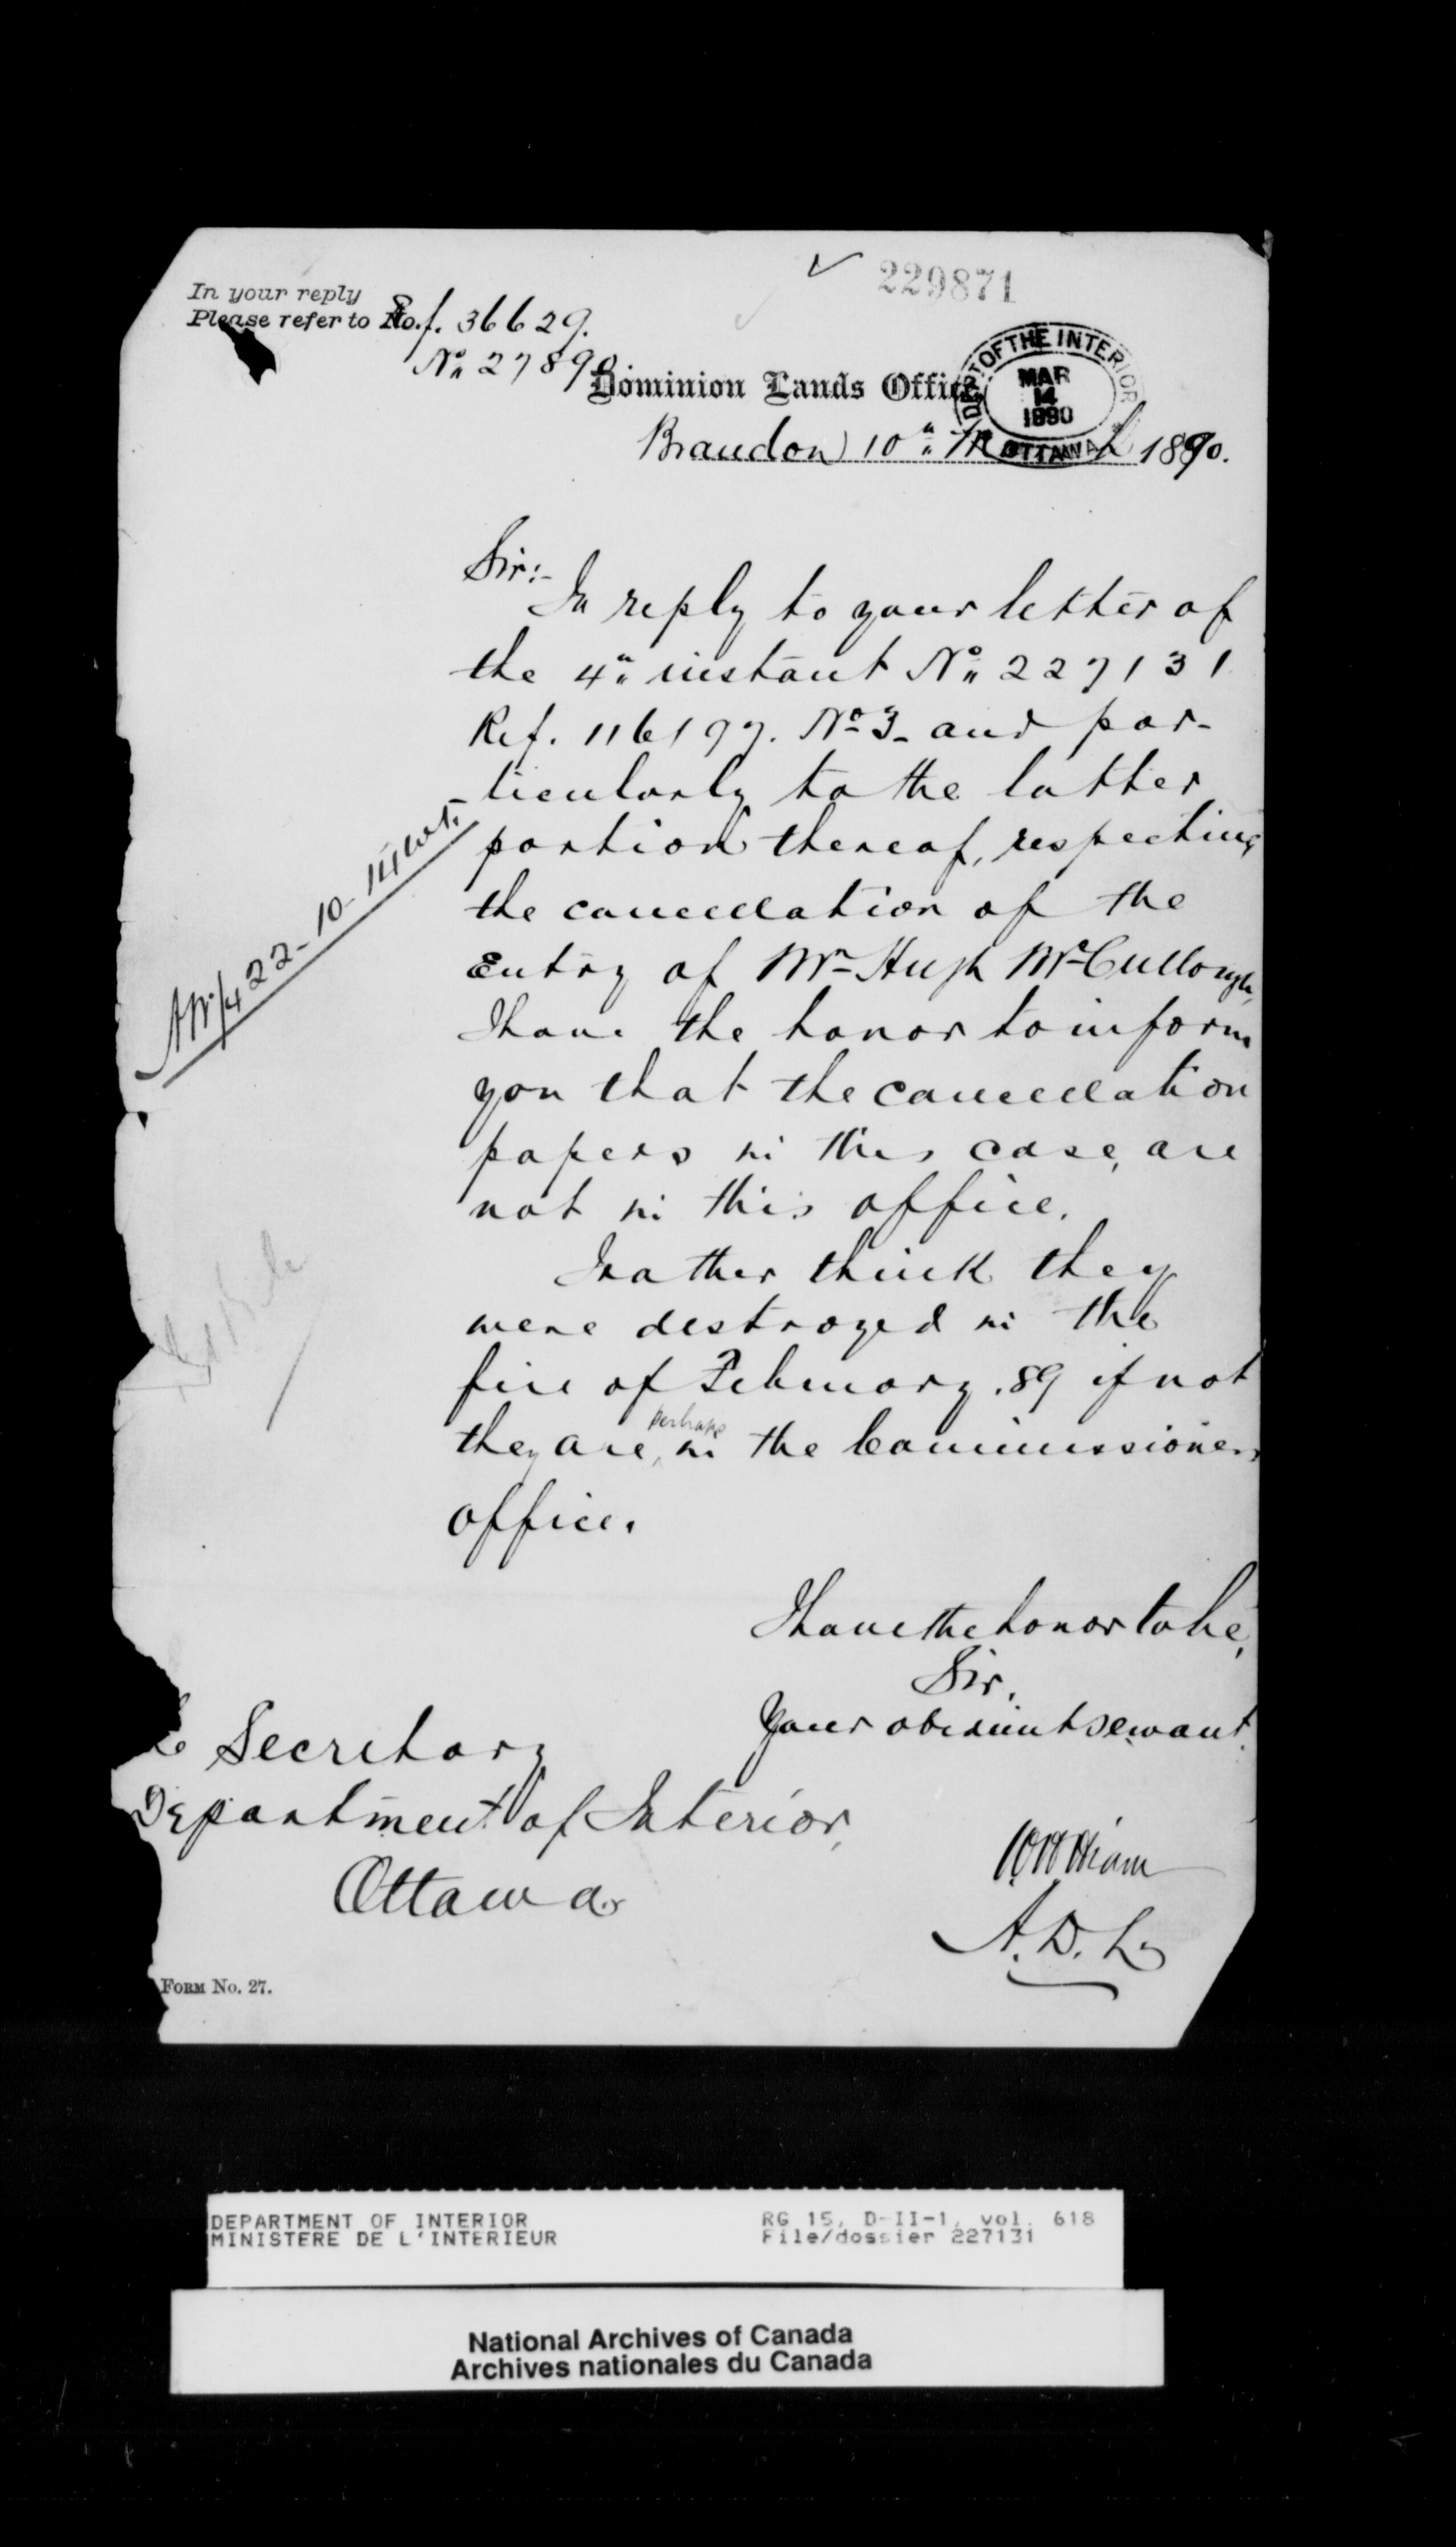 229871
In your reply
Please refer to No. Ref. 36629.
No 27890
Dominion Lands Office
DEPT OF THE INTERIOR
MAR
14
1890
OTTAWA
Brandon 10" March 1890.
Sir:-
In reply to your letter of
the 4" instant No 227131
Ref. 116197. No 3- and par-
ticularly to the latter
portion thereof, respecting
the cancellation of the
Entry of Mr Hugh McCullough,
I have the honor to inform
you that the cancellation
papers in this case, are
not in this office.
I rather think they
were destroyed in the
fire of February .89 if not
they are, perhaps in the Commissioners
office.
22-10-14 W1.
I have the honor to be,
Sir,
Your obedient servant.
Secretary
Department of Interior,
Ottawa
A.D.L.
FORM No. 27.
DEPARTMENT OF INTERIOR
MINISTERE DE L'INTERIEUR
RG 15, D-II-1, vol. 618
File/dossier 227131
National Archives of Canada
Archives nationales du Canada